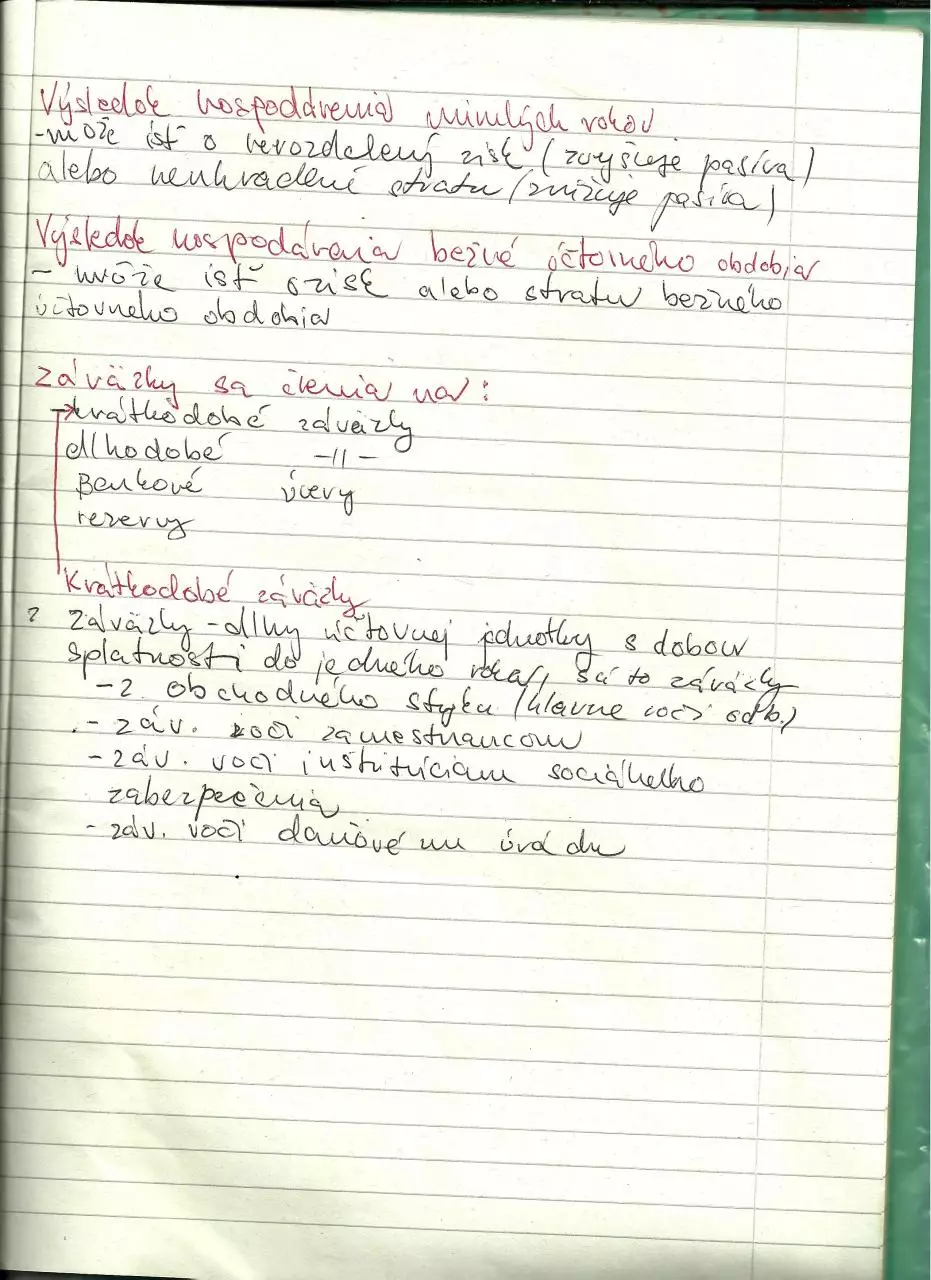 Výsledok hospodárenia minulých rokov
-môže ísť o nerozdelený zisk (zvyšuje pasíva)
alebo neuhradenú stratu (znižuje pasíva)
Výsledok hospodárenia bežné účtovného obdobia
- môže ísť o zisk alebo stratu bežného
účtovného obdobia
Záväzky sa členia na:
krátkodobé záväzky
dlhodobé -11-
Bankové úvery
rezervy
Krátkodobé záväzky
? Záväzky - dlhy účtovnej jednotky s dobou
splatnosti do jedného roka, sú to záväzky
-z. obchodného styku (hlavne voči odb.)
- záv. voči zamestnancom
- záv. voči inštitúciam sociálneho
zabezpečenia
- záv. voči daňovému úradu